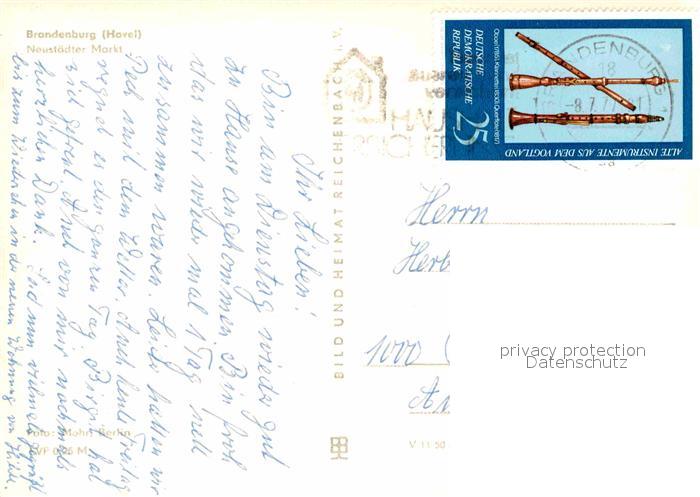 Brandenburg (Havel)
Neustädter Markt
Ihr Lieben!
Bin am Dienstag wieder gut
zu Hause angekommen. Bin froh
das wir wieder mal 1 Tag nett
zusammen waren. Leider hatten wir
Pech mit dem Wetter. Auch heute Freitag
regnet es den ganzen Tag. Birgit hat
sich gefreut. Und von mir nochmals
herzlichen Dank. Sind nun vielmals gegrüßt
bis zum Wiedersehen in der neuen Wohnung von
Foto: Mohr, Berlin
BILD UND HEIMAT REICHENBACH i. V.
V 11 50
Oboe (1785), Klarinette (1830), Querflöte (1817)
DEUTSCHE
DEMOKRATISCHE
REPUBLIK
25
ALTE INSTRUMENTE AUS DEM VOGTLAND
BRANDENBURG 1
18
-8.7.77
Herrn
Herb
1000
privacy protection
Datenschutz